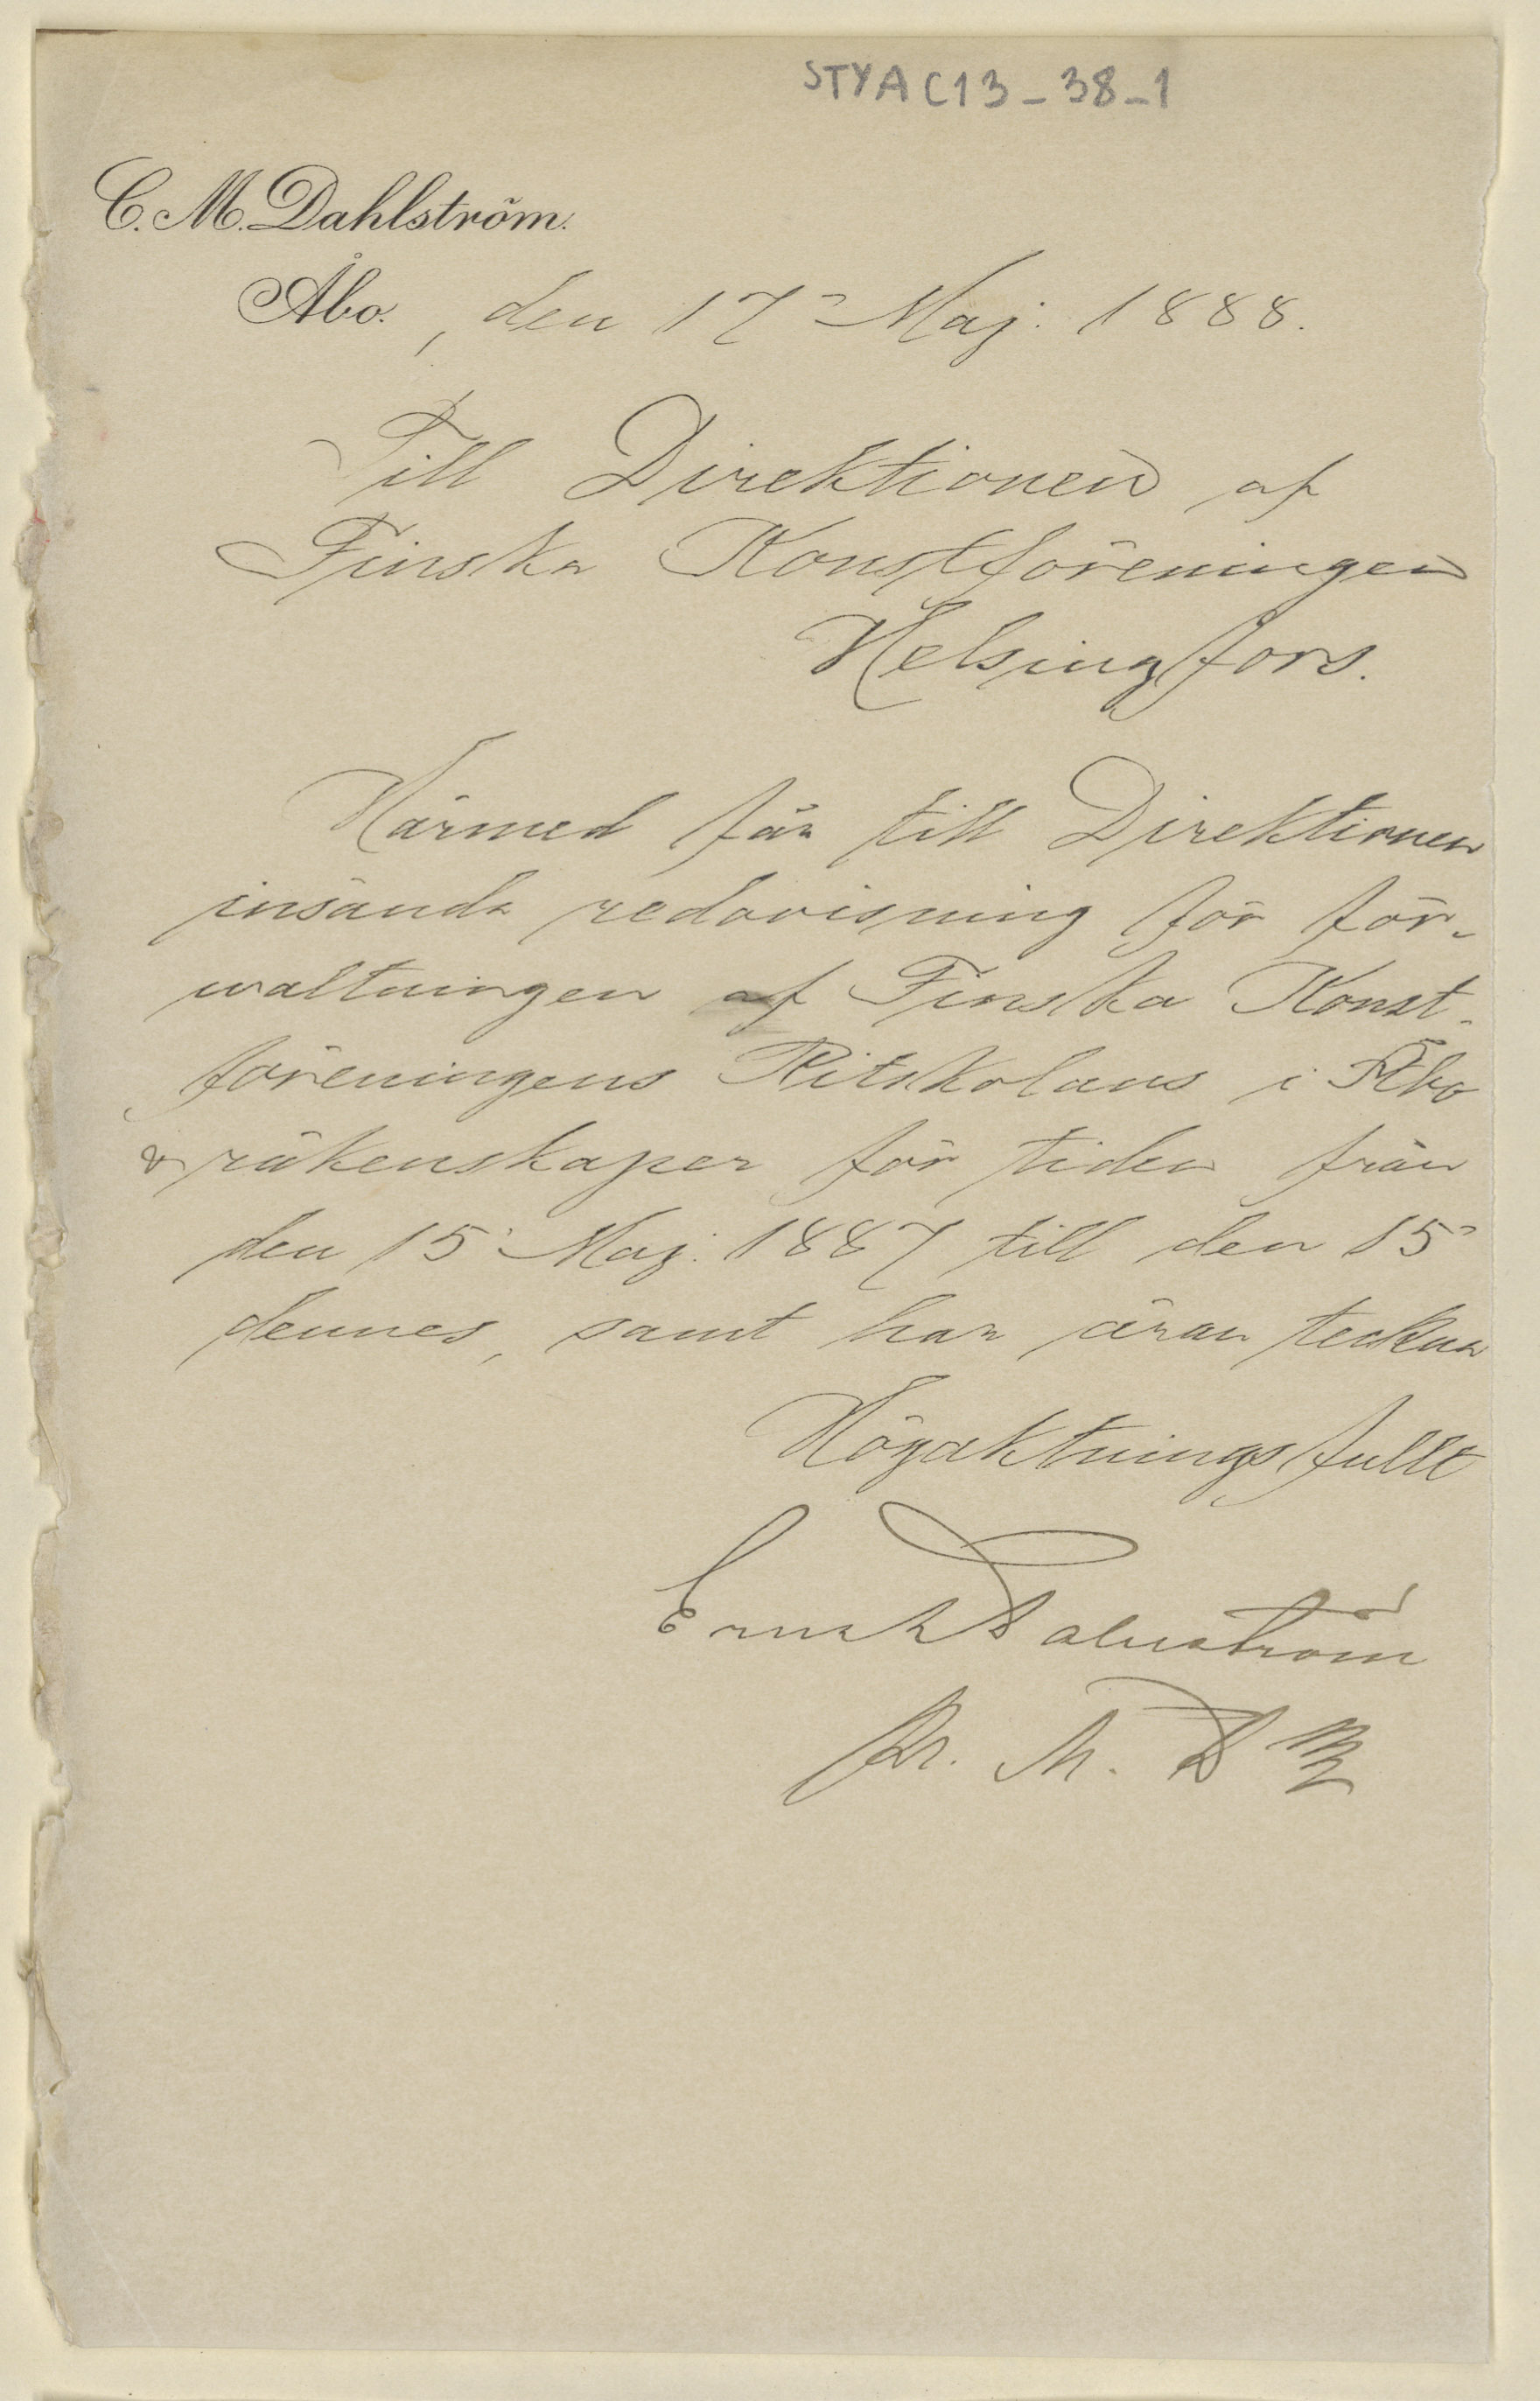 STYA C13-38-1
C. M. Dahlström.
Åbo., den 17 Maj. 1888.
Till Direktionen af
Finska Konstföreningen
Helsingfors.
Härmed får till Direktionen
insända redovisning för för-
waltningen af Finska Konst-
föreningens Ritskolans i Åbo
& räkenskaper för tiden från
den 15 Maj. 1887 till den 15
dennes, samt har äran teckna
Högaktningsfullt
Ernst Dahlström